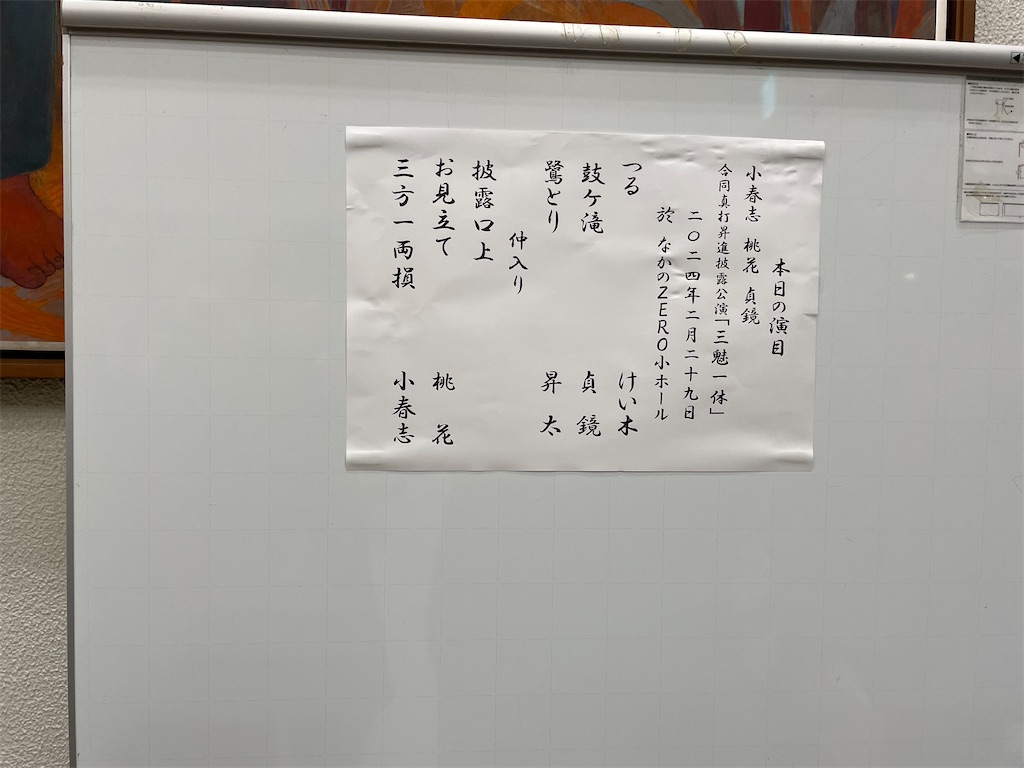 本日の演目
小春志 桃花 貞鏡
合同真打昇進披露公演「三魅一体」
二〇二四年二月二十九日
於 なかのZERO小ホール
つる けい木
鼓ケ滝 貞鏡
鷺とり 昇太
仲入り
披露口上
お見立て 桃花
三方一両損 小春志